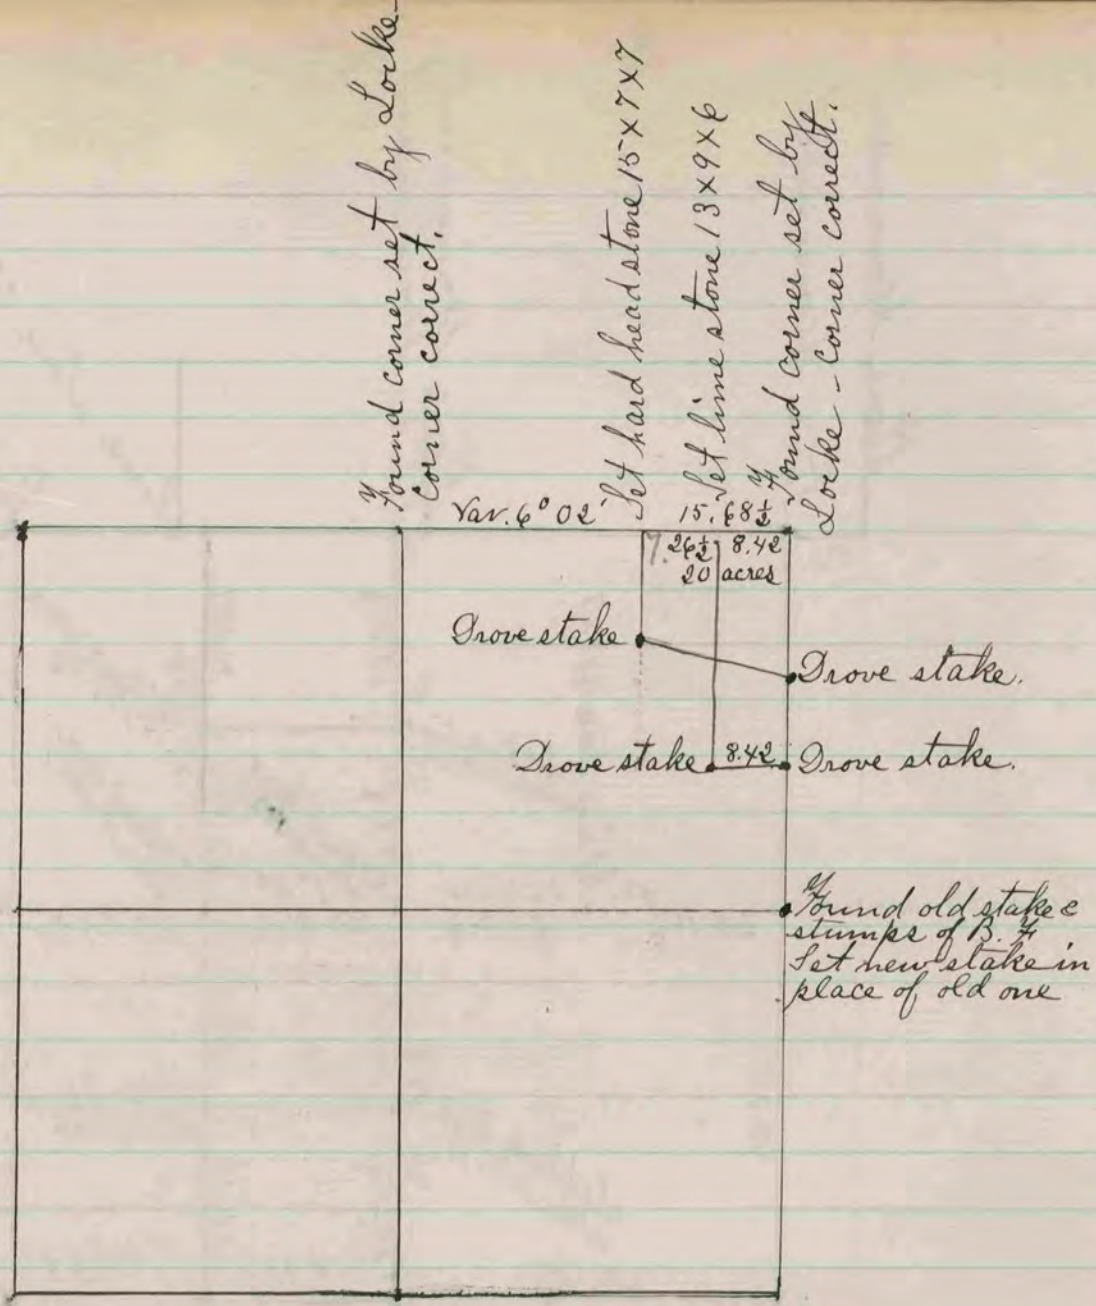 Found corner set by Locke -
Corner correct.
Set hard head stone 15 X 7 X 7
Set lime stone 13 X 9 X 6
Found corner set by
Locke - Corner correct.
Var. 6° 02' 15.68½
7.26½ 8.42
20 acres
Drove stake
Drove stake.
Drove stake 8.42 Drove stake.
Found old stake &
stumps of B. F
Set new stake in
place of old one